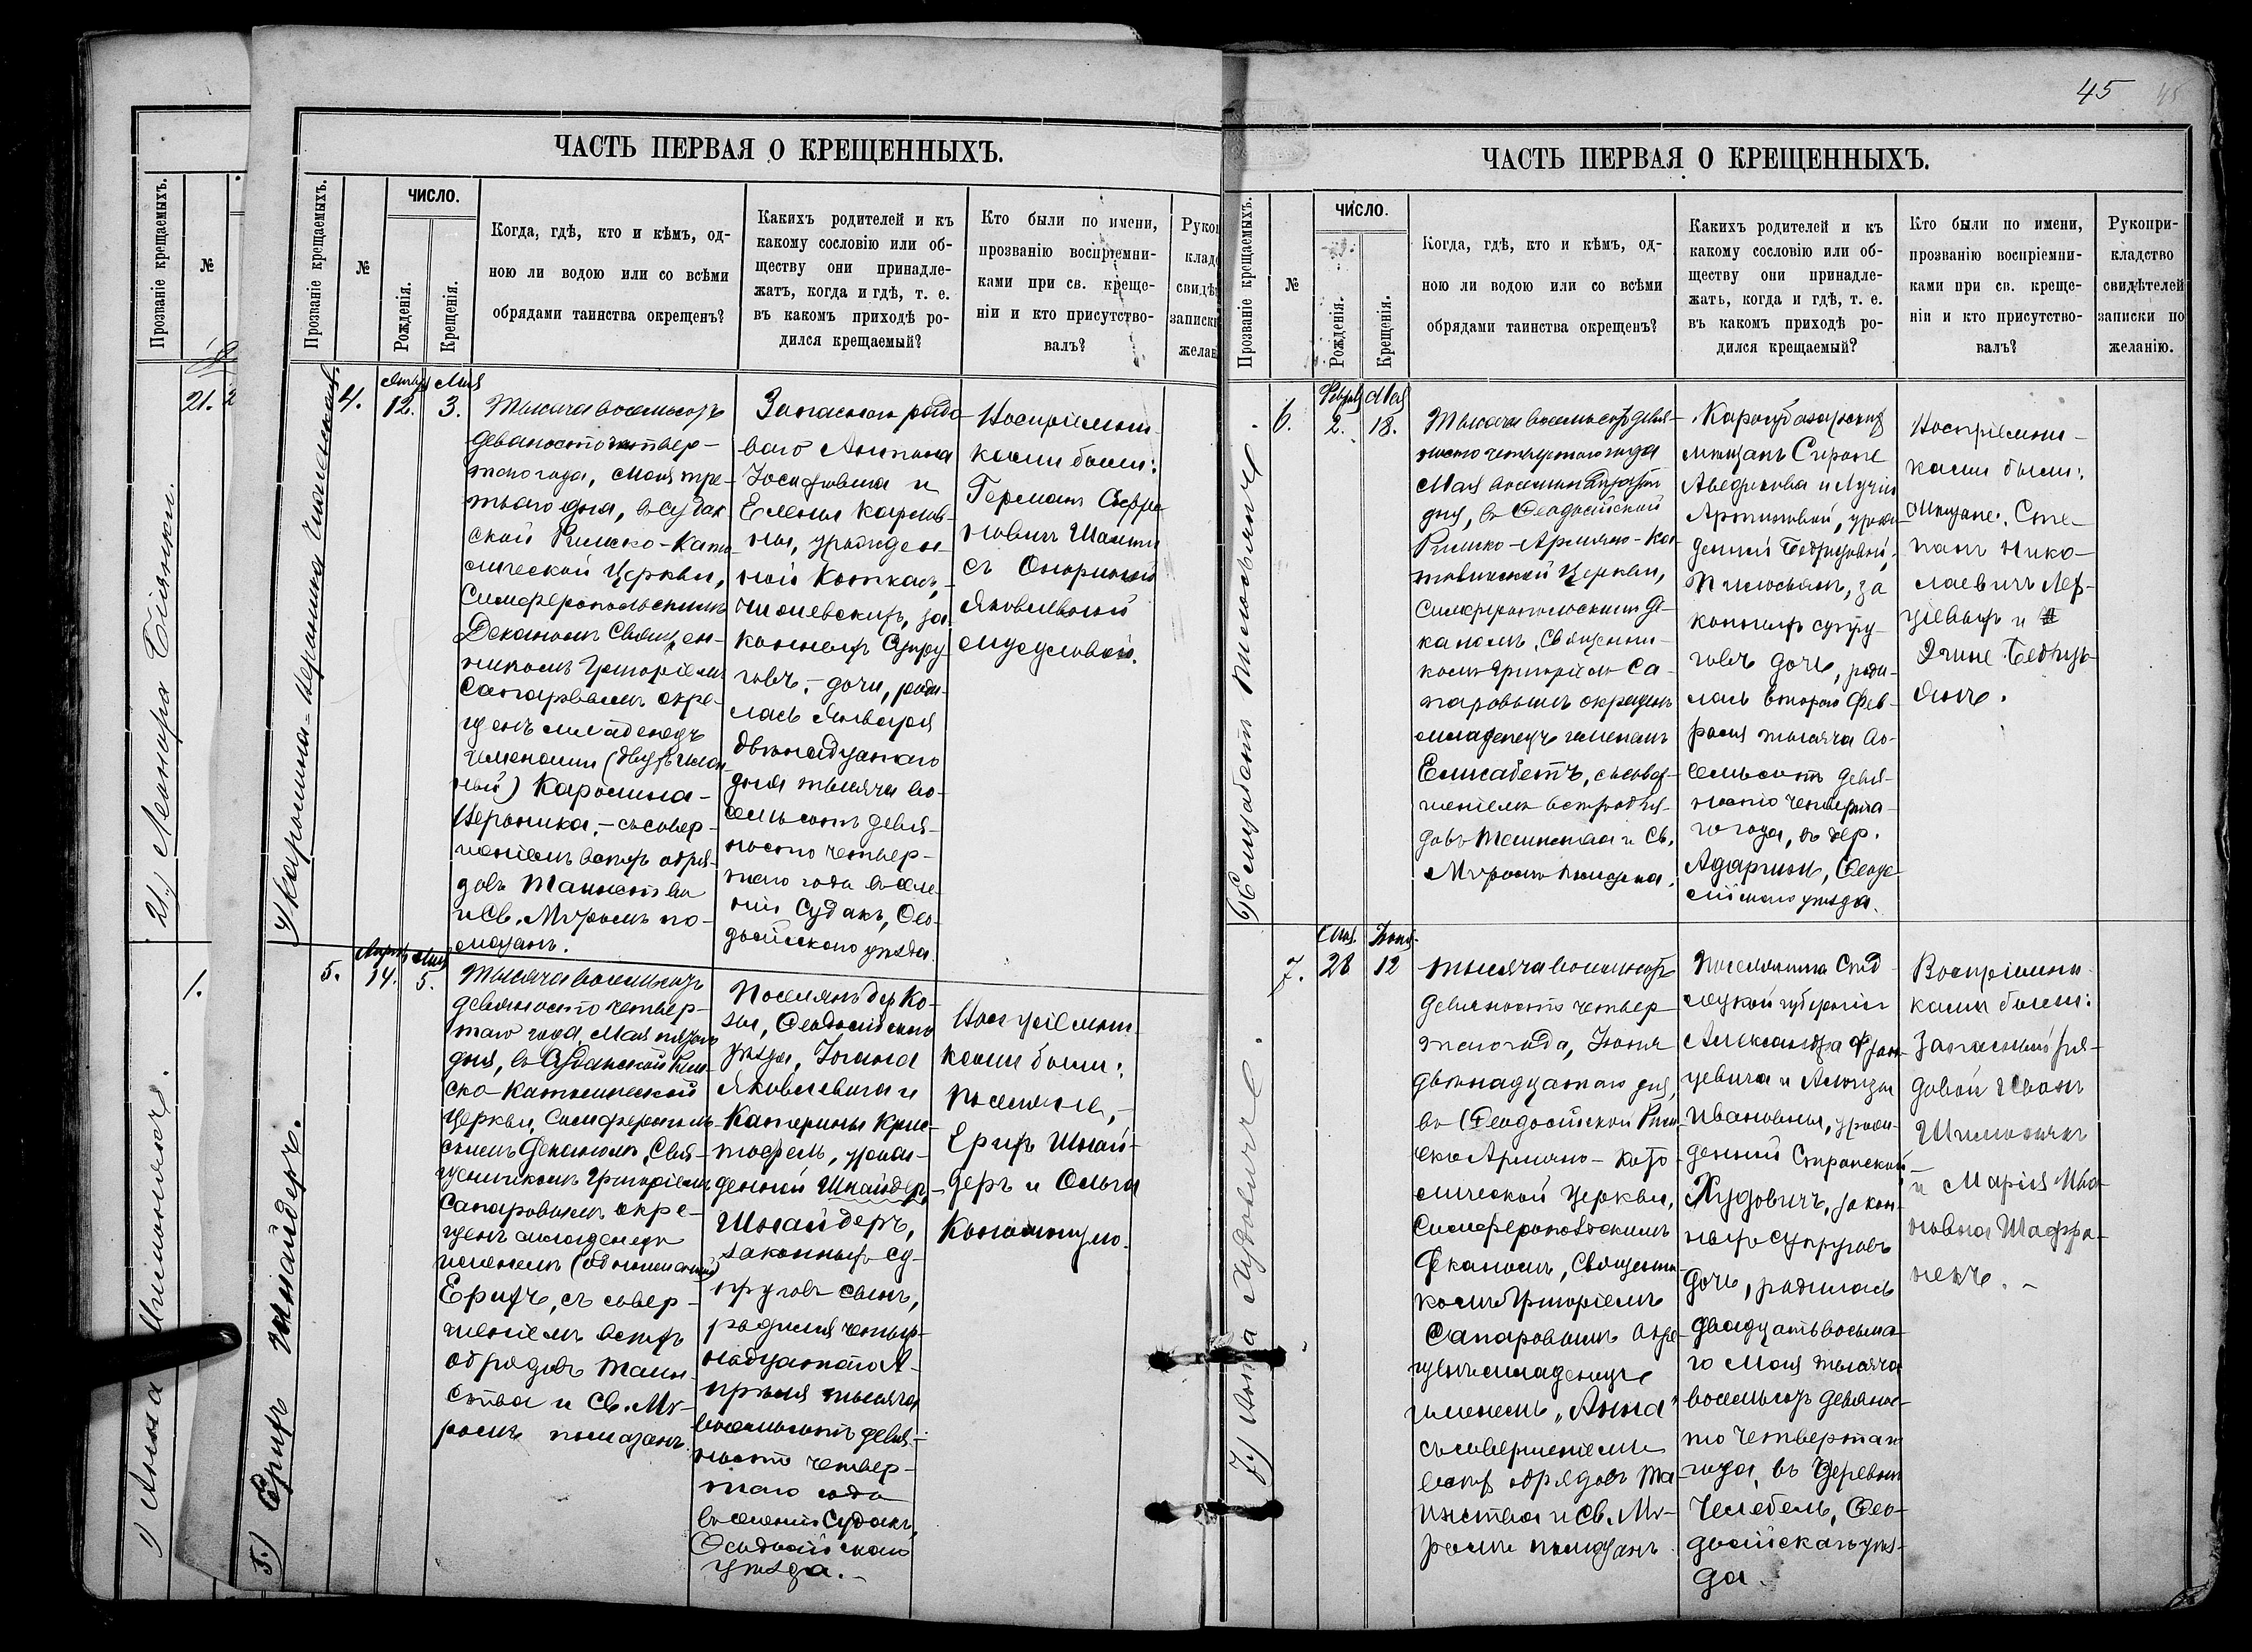 45
45
ЧАСТЬ ПЕРВАЯ О КРЕЩЕННЫХЪ.
Прозваніе крещаемыхъ.
№
21.
21.) Леонора Біянки.
1.
1) Анна
ЧАСТЬ ПЕРВАЯ О КРЕЩЕННЫХЪ.
Прозваніе крещаемыхъ.
№
ЧИСЛО.
Рожденія.
Крещенія.
Когда, гдѣ, кто и кѣмъ, од-
ною ли водою или со всѣми
обрядами таинства окрещенъ?
Какихъ родителей и къ
какому сословію или об-
ществу они принадле-
жатъ, когда и гдѣ, т. е.
въ какомъ приходѣ ро-
дился крещаемый?
Кто были по имени,
прозванію воспріемни-
ками при св. креще-
ніи и кто присутство-
валъ?
4.
12.
Мая
3.
Тысяча восемьсотъ
девяносто четвер-
таго года, Мая тре-
тьяго дня, въ Судак
ской Римско-Като
лической Церкви,
Симферопольскимъ
Деканомъ Священ-
никомъ Григоріемъ
Сапаровымъ окре-
щенъ младенецъ
именами (двухъимен
ной) Каролина-
Вероника, - съ совер-
шеніемъ всѣхъ обря-
довъ Таинства
и Св. Мѵромъ по-
мазанъ.
Запасного рядо
ваго Антона
Іосифовича и
Елены Карлов-
ны, урожден-
ной
за-
конныхъ супру
говъ, - дочь, роди-
лась Января
двѣнадцатаго
дня тысяча во-
семьсотъ девя-
носто четвер-
таго года въ селе-
ніи Судакъ, Ѳео-
досійского уѣзда.
Воспріемни-
ками были:
Германъ
съ
Яковлевной
5.
Апрѣль
14.
Мая
5.
Тысяча восемьсотъ
девяносто четвер-
таго года, Мая пятаго
дня, въ Судакской Рим-
ско-Католической
Церкви, Симферополь-
скимъ Деканомъ, Свя-
щенникомъ Григоріемъ
Сапаровымъ окре-
щенъ младенецъ
именемъ (одноименный)
Ерихъ, съ совер-
шеніемъ всѣхъ
обрядовъ Таин-
ства и Св. Мѵ-
ромъ помазанъ.
Поселянъ дер. Ко-
зы, Ѳеодосійского
уѣзда, Іогана
Яковлевича и
Катерины Крис-
тофель, урож-
денной Шнайдеръ-
Шнайдеръ,
законныхъ су-
пруговъ сынъ,
родился четыр-
надцатаго А-
прѣля тысяча
восемьсотъ девя-
носто четвер-
таго года
въ селеніи Судакъ,
Ѳеодосійскаго
уѣзда. -
Воспріемни-
ками были:
поселяне, -
Ерихъ Шнай-
деръ и Ольга
5.) Ерихъ Шнайдеръ.
ЧАСТЬ ПЕРВАЯ О КРЕЩЕННЫХЪ.
Прозваніе крещаемыхъ.
№
ЧИСЛО.
Рожденія.
Крещенія.
Когда, гдѣ, кто и кѣмъ, од-
ною ли водою или со всѣми
обрядами таинства окрещенъ?
Какихъ родителей и къ
какому сословію или об-
ществу они принадле-
жатъ, когда и гдѣ, т. е.
въ какомъ приходѣ ро-
дился крещаемый?
Кто были по имени,
прозванію воспріемни-
ками при св. креще-
ніи и кто присутство-
валъ?
Рукопри-
кладство
свидѣтелей
записки по
желанію.
6.
2.
Мая
18.
Тысяча восемьсотъ девя-
носто четвертаго года
Мая восемнадцатаго
дня, въ Ѳеодосійской
Римско-Армяно-Ка-
толической Церкви,
Симферопольскимъ Де-
каномъ, Священни-
комъ Григоріемъ Са-
паровымъ окрещенъ
младенецъ именемъ
Елисабетъ, съ совер-
шеніемъ всѣхъ обря-
довъ Таинства и Св.
Мѵромъ помазана.
Карасубазарскихъ
мѣщанъ
за
конныхъ супру-
говъ дочь, роди-
лась второго Фев-
раля тысяча во-
семьсотъ девя-
носто четверта-
го года, въ дер.
Адаргинъ, Ѳеодо-
сійскаго уѣзда.
Воспріемни-
ками были:
мѣщане: Сте-
панъ Нико-
лаевичъ
и
7.
Мая.
28
Іюня.
12
Тысяча восемьсотъ
девяносто четвер
таго года, Іюня
двѣнадцатаго дня,
въ Ѳеодосійской Рим-
ско Армяно-Като
лической Церкви,
Симферопольскимъ
Деканомъ, Священни
комъ Григоріемъ
Сапаровымъ окре-
щенъ младенецъ
именемъ „Анна"
съ совершеніемъ
всѣхъ обрядовъ Та-
инства и Св. Мѵ-
ромъ помазанъ.
Поселянина Сѣд-
лецкой губерніи
Александра Фран-
цевича и
Ивановны, урож-
денной
Худовичъ, закон-
ныхъ супруговъ
дочь, родилась
двадцать восьма-
го Мая тысяча
восемьсотъ девянос-
то четвертаго
года, въ деревнѣ
Челебели, Ѳео-
досійскаго уѣз-
да.
Воспріемни-
ками были:
Запасный ря-
довой Иванъ
и Марія Ива-
новна
7.) Анна Худовичъ.